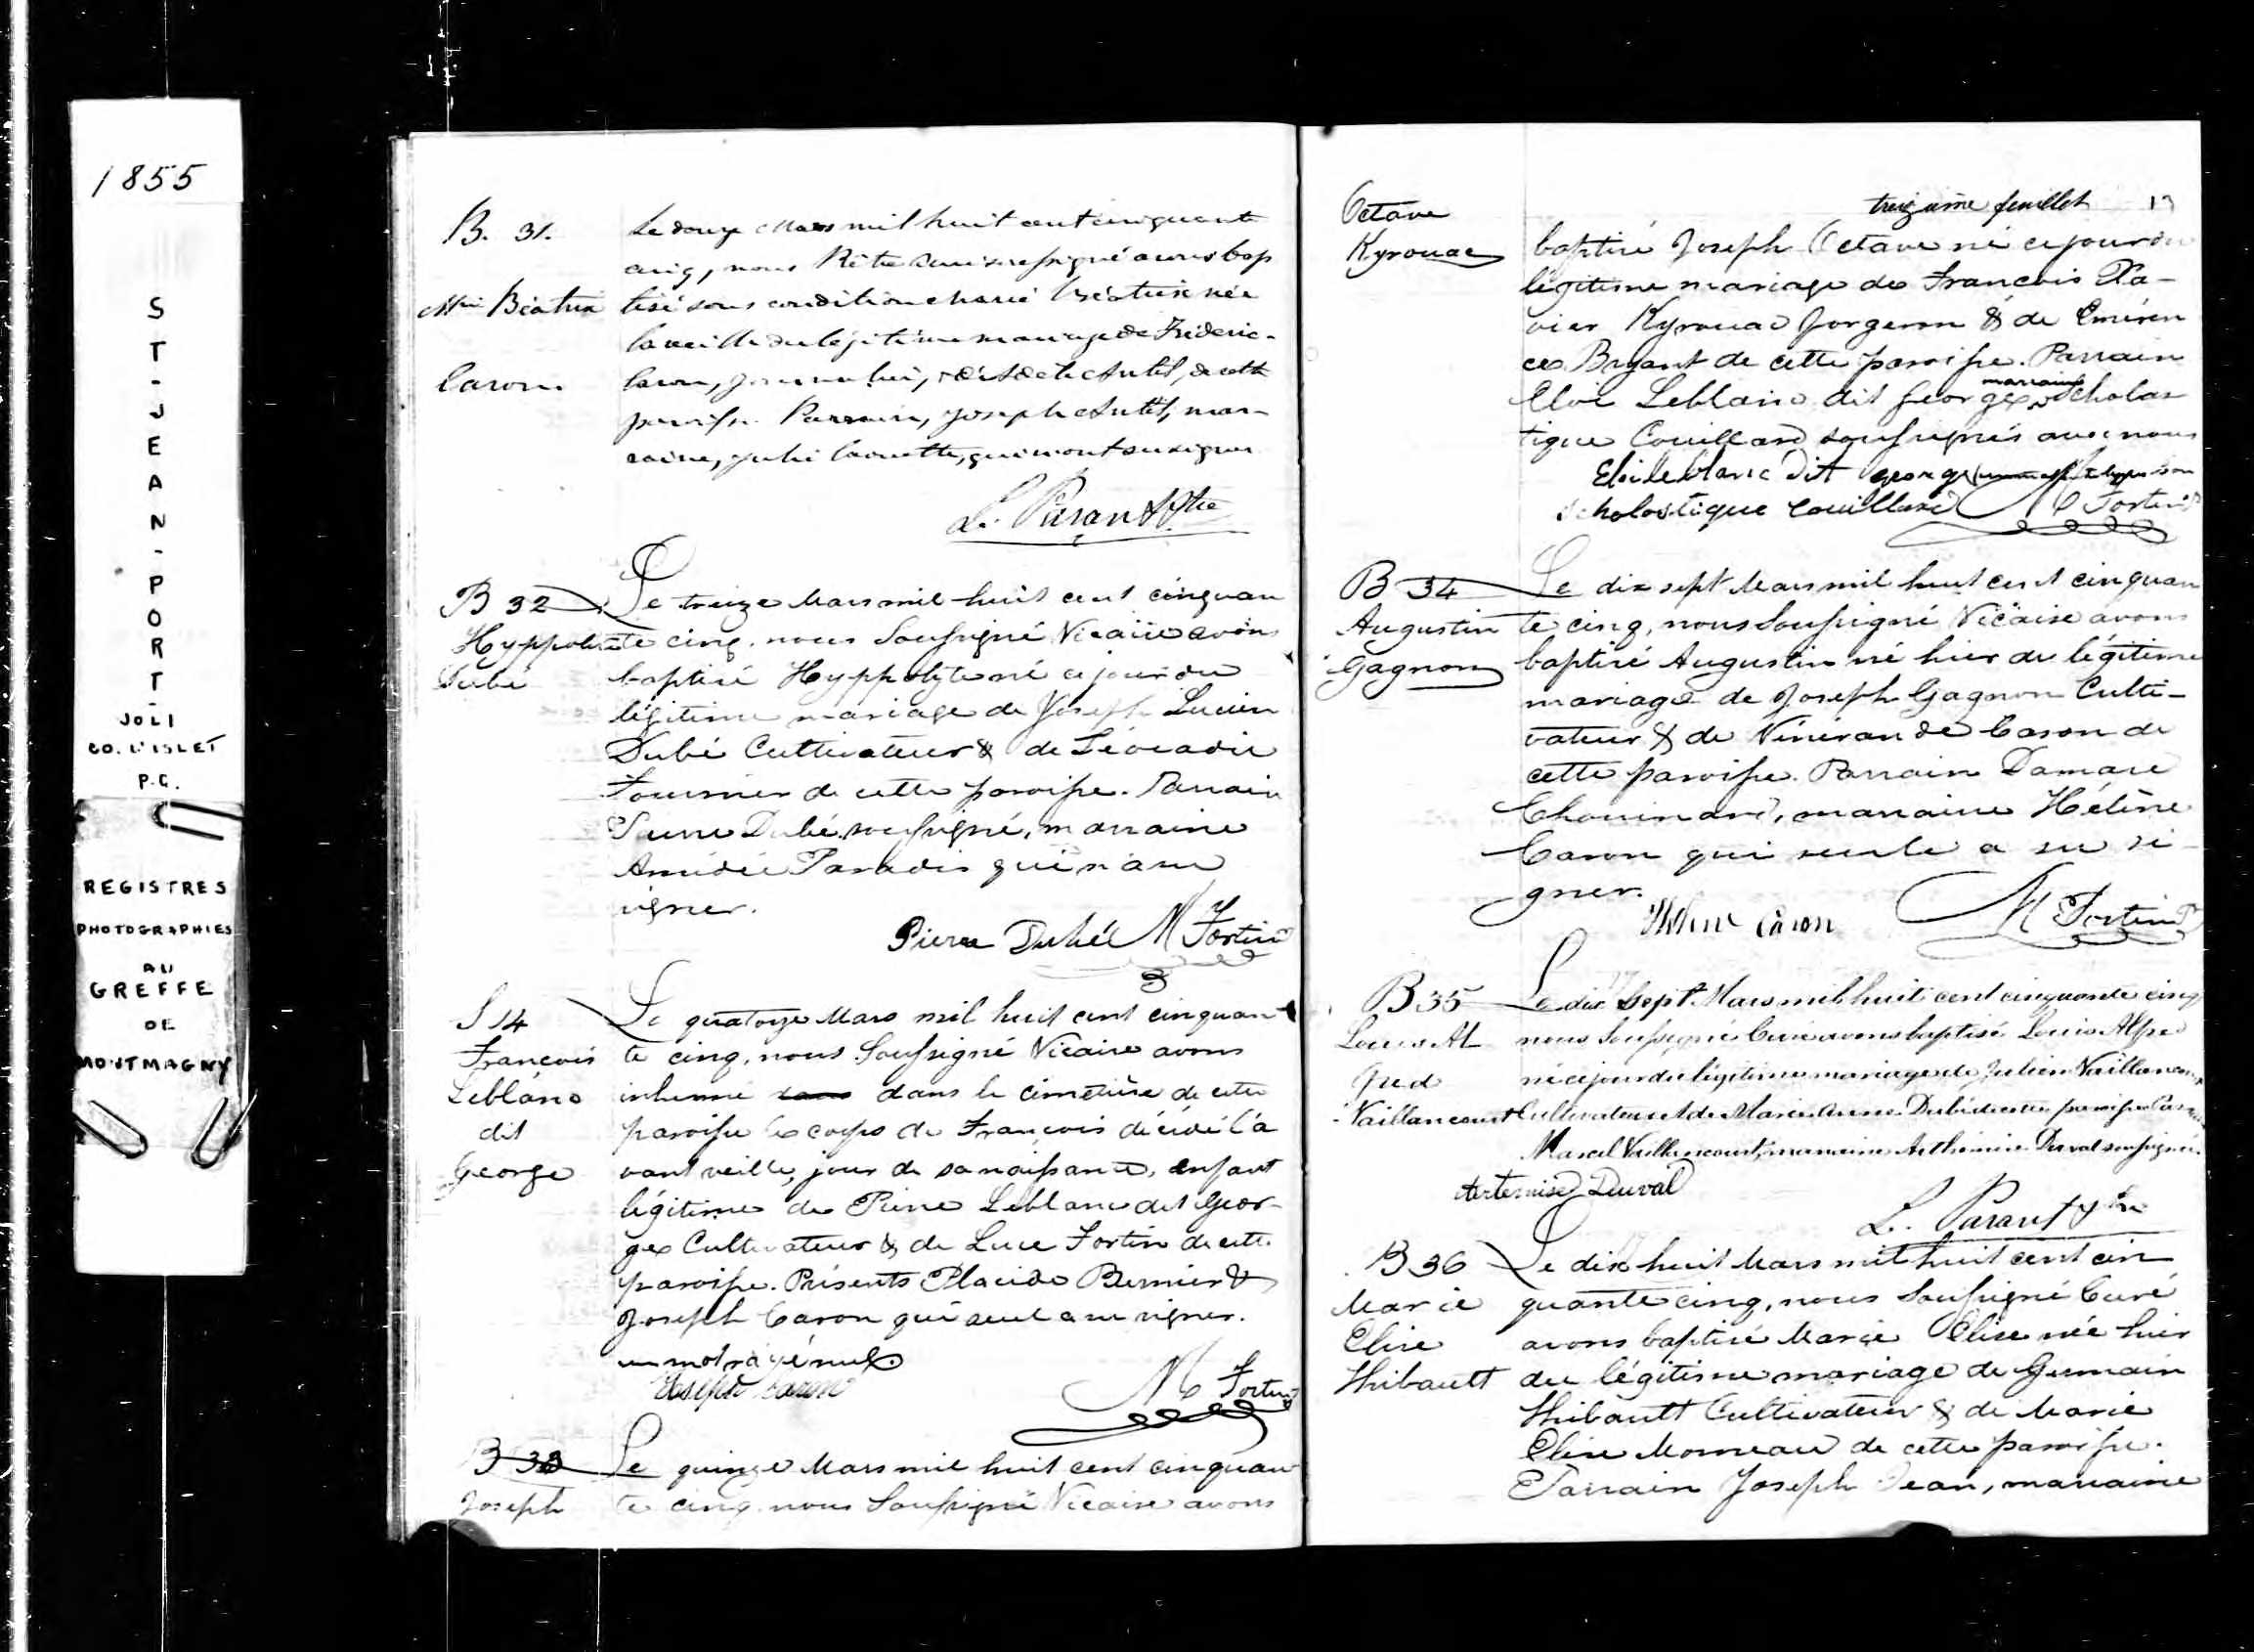 1855
ST-JEAN-PORT-
JOLI
CO. L'ISLET
P.C.
REGISTRES
PHOTOGRAPHIES
AU
GREFFE
DE
MONTMAGNY
B. 31.
Mie Béatrix
Caron.
Le douze Mars mil huit cent cinquante
cinq, nous Prêtre soussigné avons bap
tisé sous condition Marie Béatrix née
la veille du légitime mariage de Frédéric
Caron, & de Autil, de cette
paroisse. Parrain, Joseph Autil, mar-
raine, Julie Caouette, qui n'ont su signer
L. Parant Ptre
B 32
Hyppolite
Dubé
Le treize Mars mil huit cent cinquan
te cinq, nous Soussigné Vicaire avons
baptisé Hyppolyte né ce jour du
légitime mariage de Joseph Lucien
Dubé Cultivateur & de Léocadie
Fournier de cette paroisse. Parrain
Pierre Dubé soussigné, marraine
Amédée Paradis qui n'a su
signer.
Pierre Dubé M Fortin
S 14
François
Leblanc
dit
George
Le quatorze Mars mil huit cent cinquan
te cinq, nous Soussigné Vicaire avons
inhumé dans dans le cimetière de cette
paroisse le corps de François décédé l'a
vant veille, jour de sa naissance, enfant
légitime de Pierre Leblanc dit Geor-
ges Cultivateur & de Luce Fortin de cette
paroisse. Présents Placide Bernier &
Joseph Caron qui seul a su signer.
un mot rayé nul.
Joseph Caron M Fortin
B 33
Joseph
Le quinze Mars mil huit cent cinquan
te cinq, nous Soussigné Vicaire avons
treizième feuillet 13
Octave
Kyrouac
baptisé Joseph Octave né ce jour du
légitime mariage de François Xa-
vier Kyrouac forgeron & de Eméren
ce Bryant de cette paroisse. Parrain
Eloi Leblanc dit George, marraine Scholas
tique Couillard soussignés avec nous
Eloi leblanc dit george
scholastique Couillard M Fortin
B 34
Augustin
Gagnon
Le dix sept Mars mil huit cent cinquan
te cinq, nous Soussigné Vicaire avons
baptisé Augustin né hier du légitime
mariage de Joseph Gagnon Culti-
vateur & de Vénérande Caron de
cette paroisse. Parrain Damase
Chouinard, marraine Hélène
Caron qui seule a su si
gner.
Hélène Caron M Fortin
B 35
Louis Al
fred
Vaillancourt
Le dix Sept Mars mil huit cent cinquante cinq
nous Soussigné Curé avons baptisé Louis Alfred
né ce jour du légitime mariage de Julien Vaillancourt
Cultivateur et de Marie Anne Dubé de cette paroisse Parrain
Marcel Vaillancourt, marraine Arthémise Duval soussignée.
Artemise Duval
L. Parant Ptre
B 36
Marie
Elise
Thibault
Le dix huit Mars mil huit cent cin
quante cinq, nous Soussigné Curé
avons baptisé Marie Elise née hier
du légitime mariage de Germain
Thibault Cultivateur & de Marie
Elise Morneau de cette paroisse.
Parrain Joseph Jean, marraine